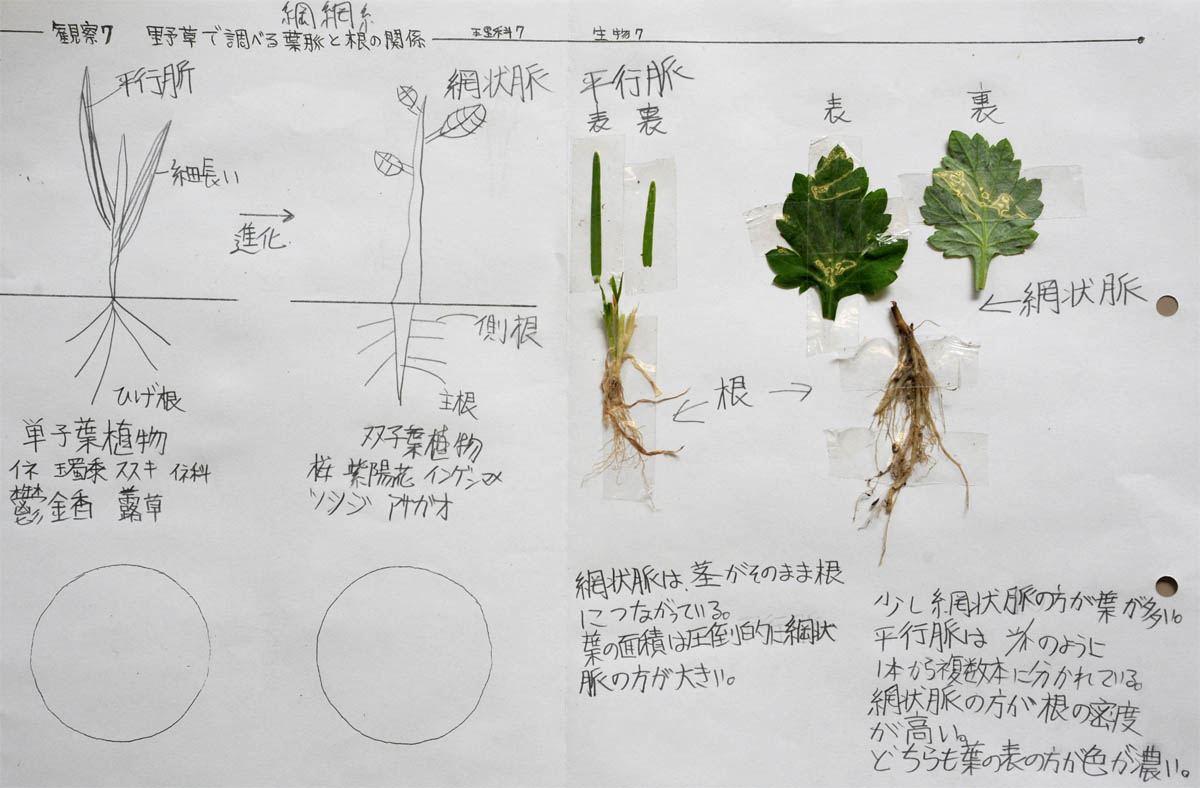 綱網糸
観察7 野草で調べる葉脈と根の関係 理科7 生物7
平行脈
細長い
進化
ひげ根
単子葉植物
イネ 玉蜀黍 ススキ イネ科
鬱金香 露草
網状脈
側根
主根
双子葉植物
桜 紫陽花 インゲンマメ
ツツジ アサガオ
平行脈
表 裏
表 裏
網状脈
根
網状脈は、茎がそのまま根
につながっている。
葉の面積は圧倒的に網状
脈の方が大きい。
少し網状脈の方が葉が多い。
平行脈は のように
1本から複数本に分かれている。
網状脈の方が根の密度
が高い。
どちらも葉の表の方が色が濃い。